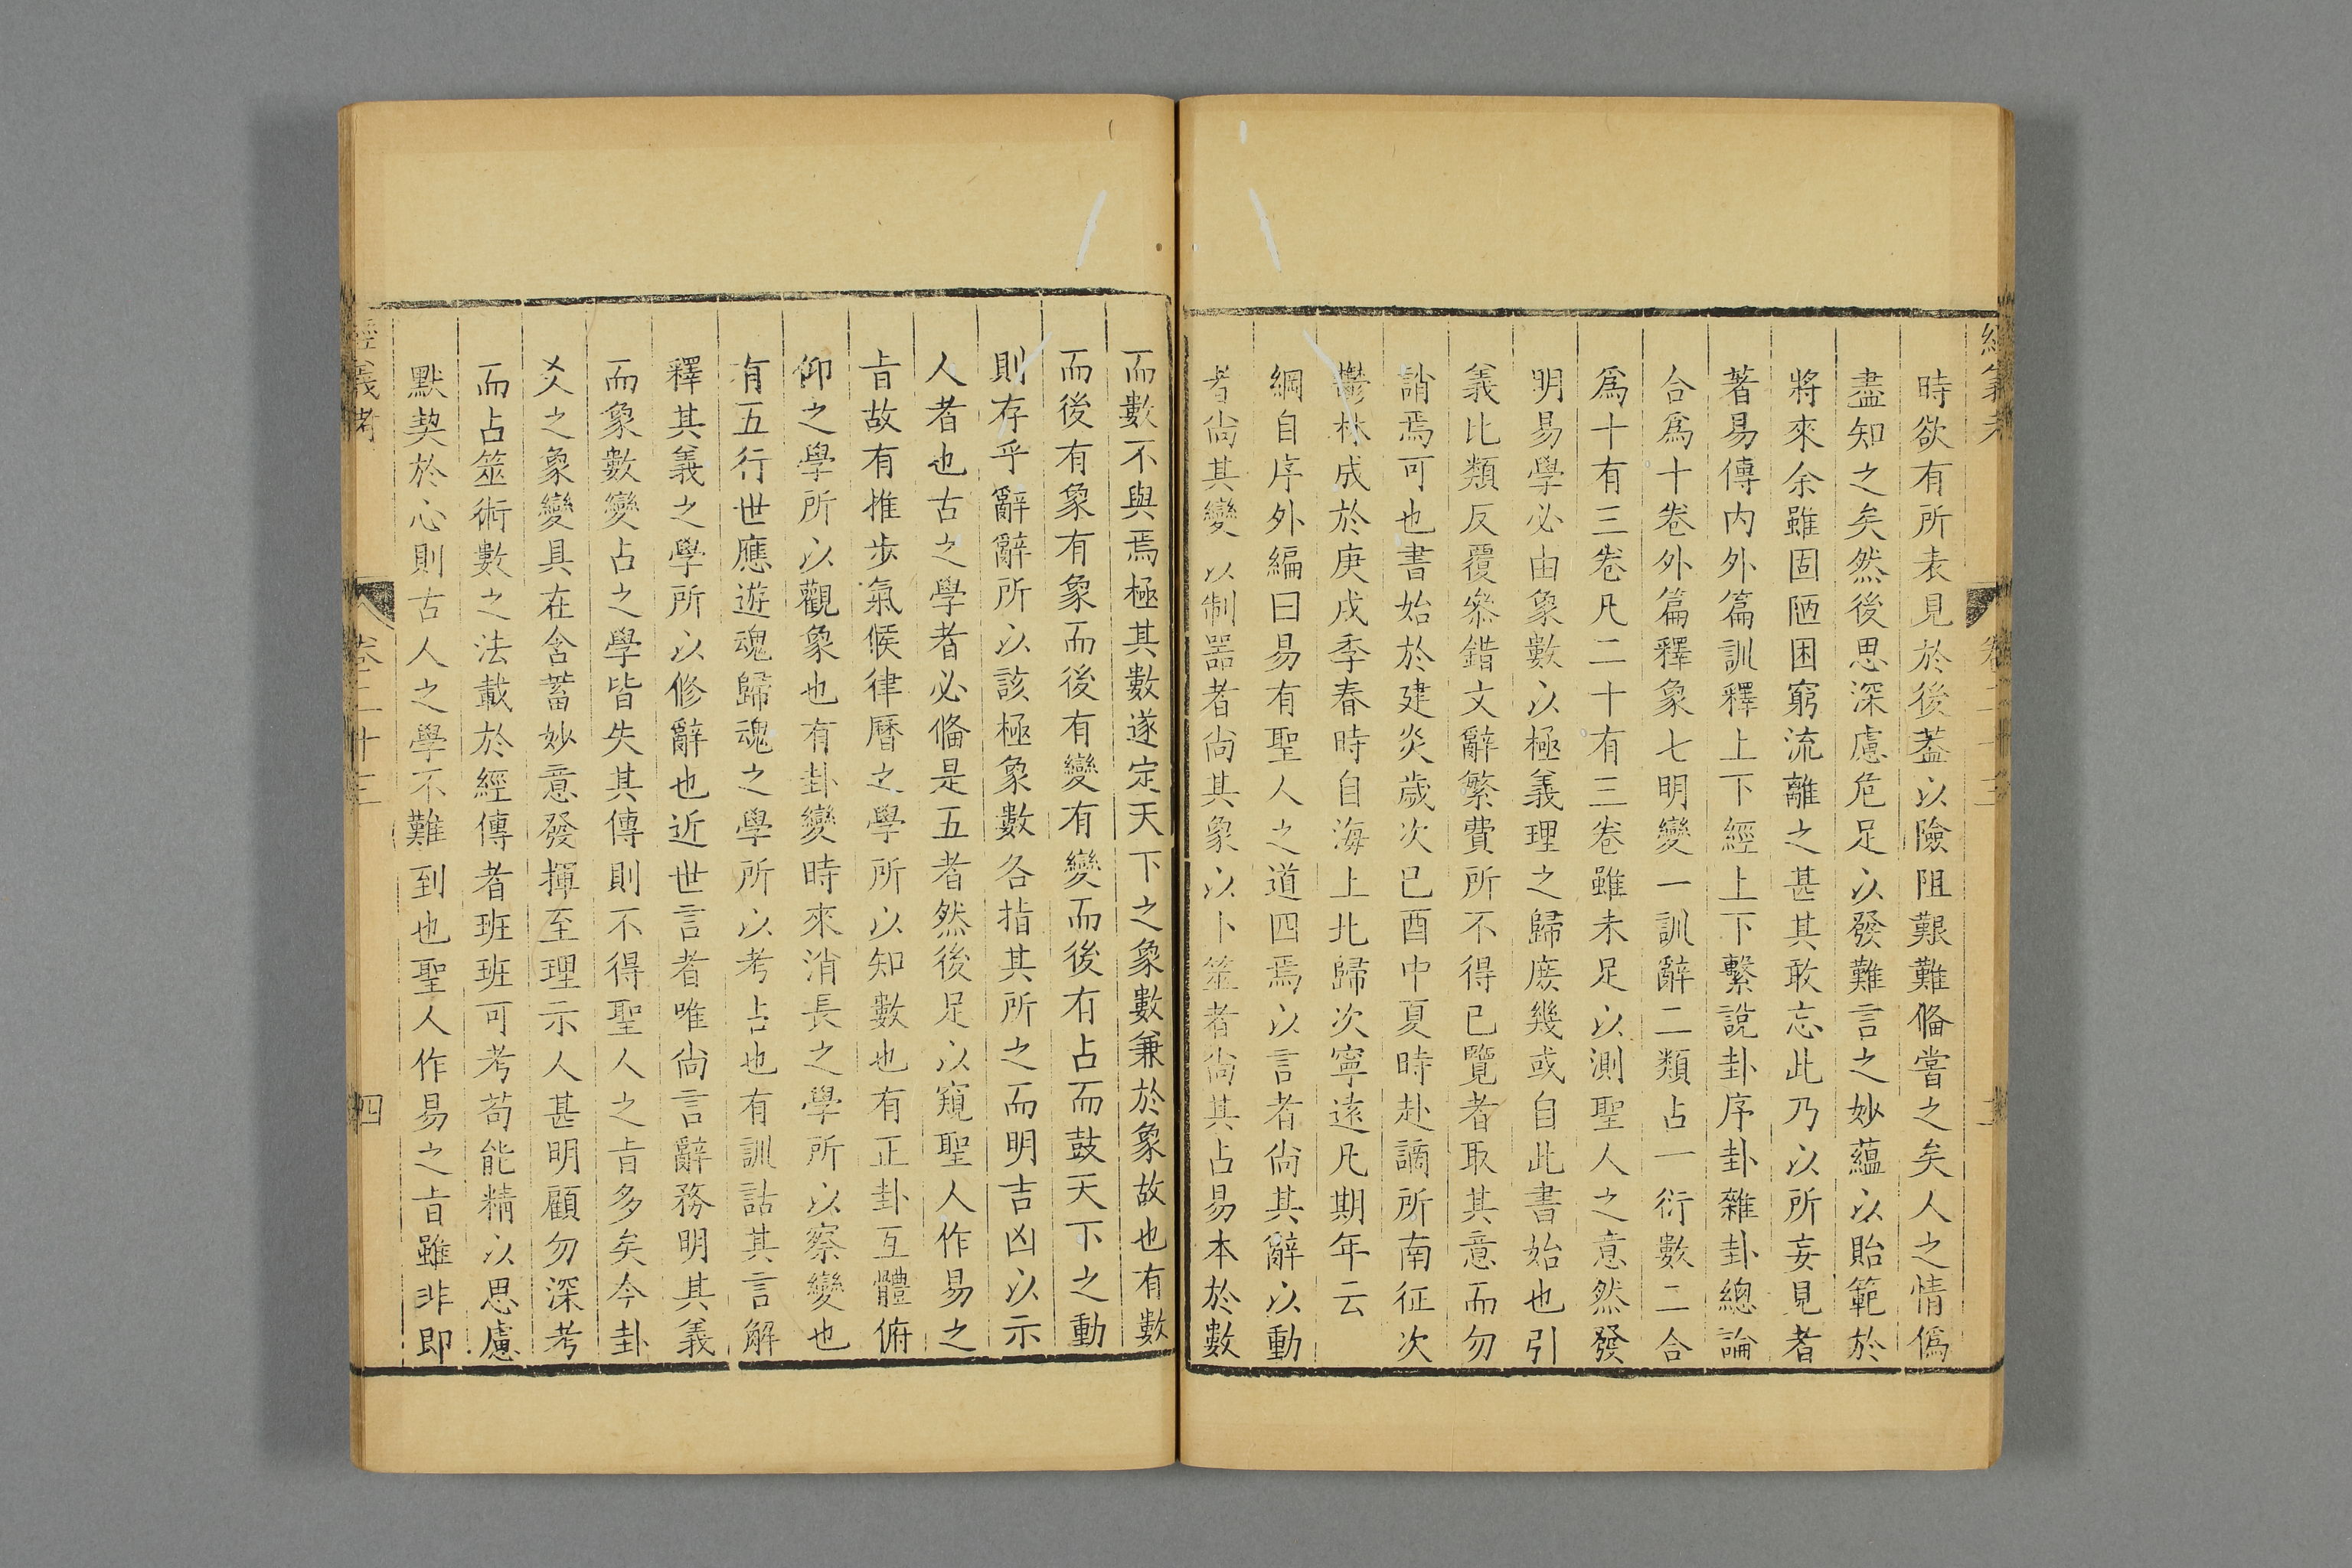 時欲有所表見於後葢以險阻艱難俻當之矣人之情僞
盡知之矣然後思深慮危足以發難言之妙蘊以貽範於
將來余雖固陋困窮流離之甚其敢忘此乃以所妄見者
著易傳内外篇訓釋上下經上下繫說卦序卦雜卦總論
合爲十卷外篇釋象七明變一訓辭二類占一衍數二合
爲十有三卷凡二十有三卷雖未足以測聖人之意然發
明易學必由象數以極義理之歸庻幾或自此書始也引
義比類反覆叅錯文辭繁費所不得已覽者取其意而勿
誚焉可也書始於建炎歲次已酉中夏時赴謫所南征次
鬱林成於庚戌季春時自海上北歸次寧逺凡期年云
綱自序外編曰易有聖人之道四焉以言者尙其辭以動
者尙其變以制噐者尙其象以卜筮者尙其占易本於數
而數不與焉極其數遂定天下之象數兼於象故也有數
而後有象有象而後有變有變而後有占而鼓天下之動
則存乎辭辭所以該極象數各指其所之而明吉凶以示
人者也古之學者必俻是五者然後足以窺聖人作易之
㫖故有推步氣候律曆之學所以知數也有正卦互體俯
仰之學所以觀象也有卦變時來消長之學所以察變也
有五行世應遊魂歸魂之學所以考占也有訓詁其言解
釋其義之學所以修辭也近世言者唯尙言辭務明其義
而象數變占之學皆失其傳則不得聖人之㫖多矣今卦
爻之象變具在含蓄妙意發揮至理示人甚明顧勿深考
而占筮術數之法載於經傳者班班可考苟能精以思慮
默契於心則古人之學不難到也聖人作易之㫖雖非即
經義考
卷二十三
四